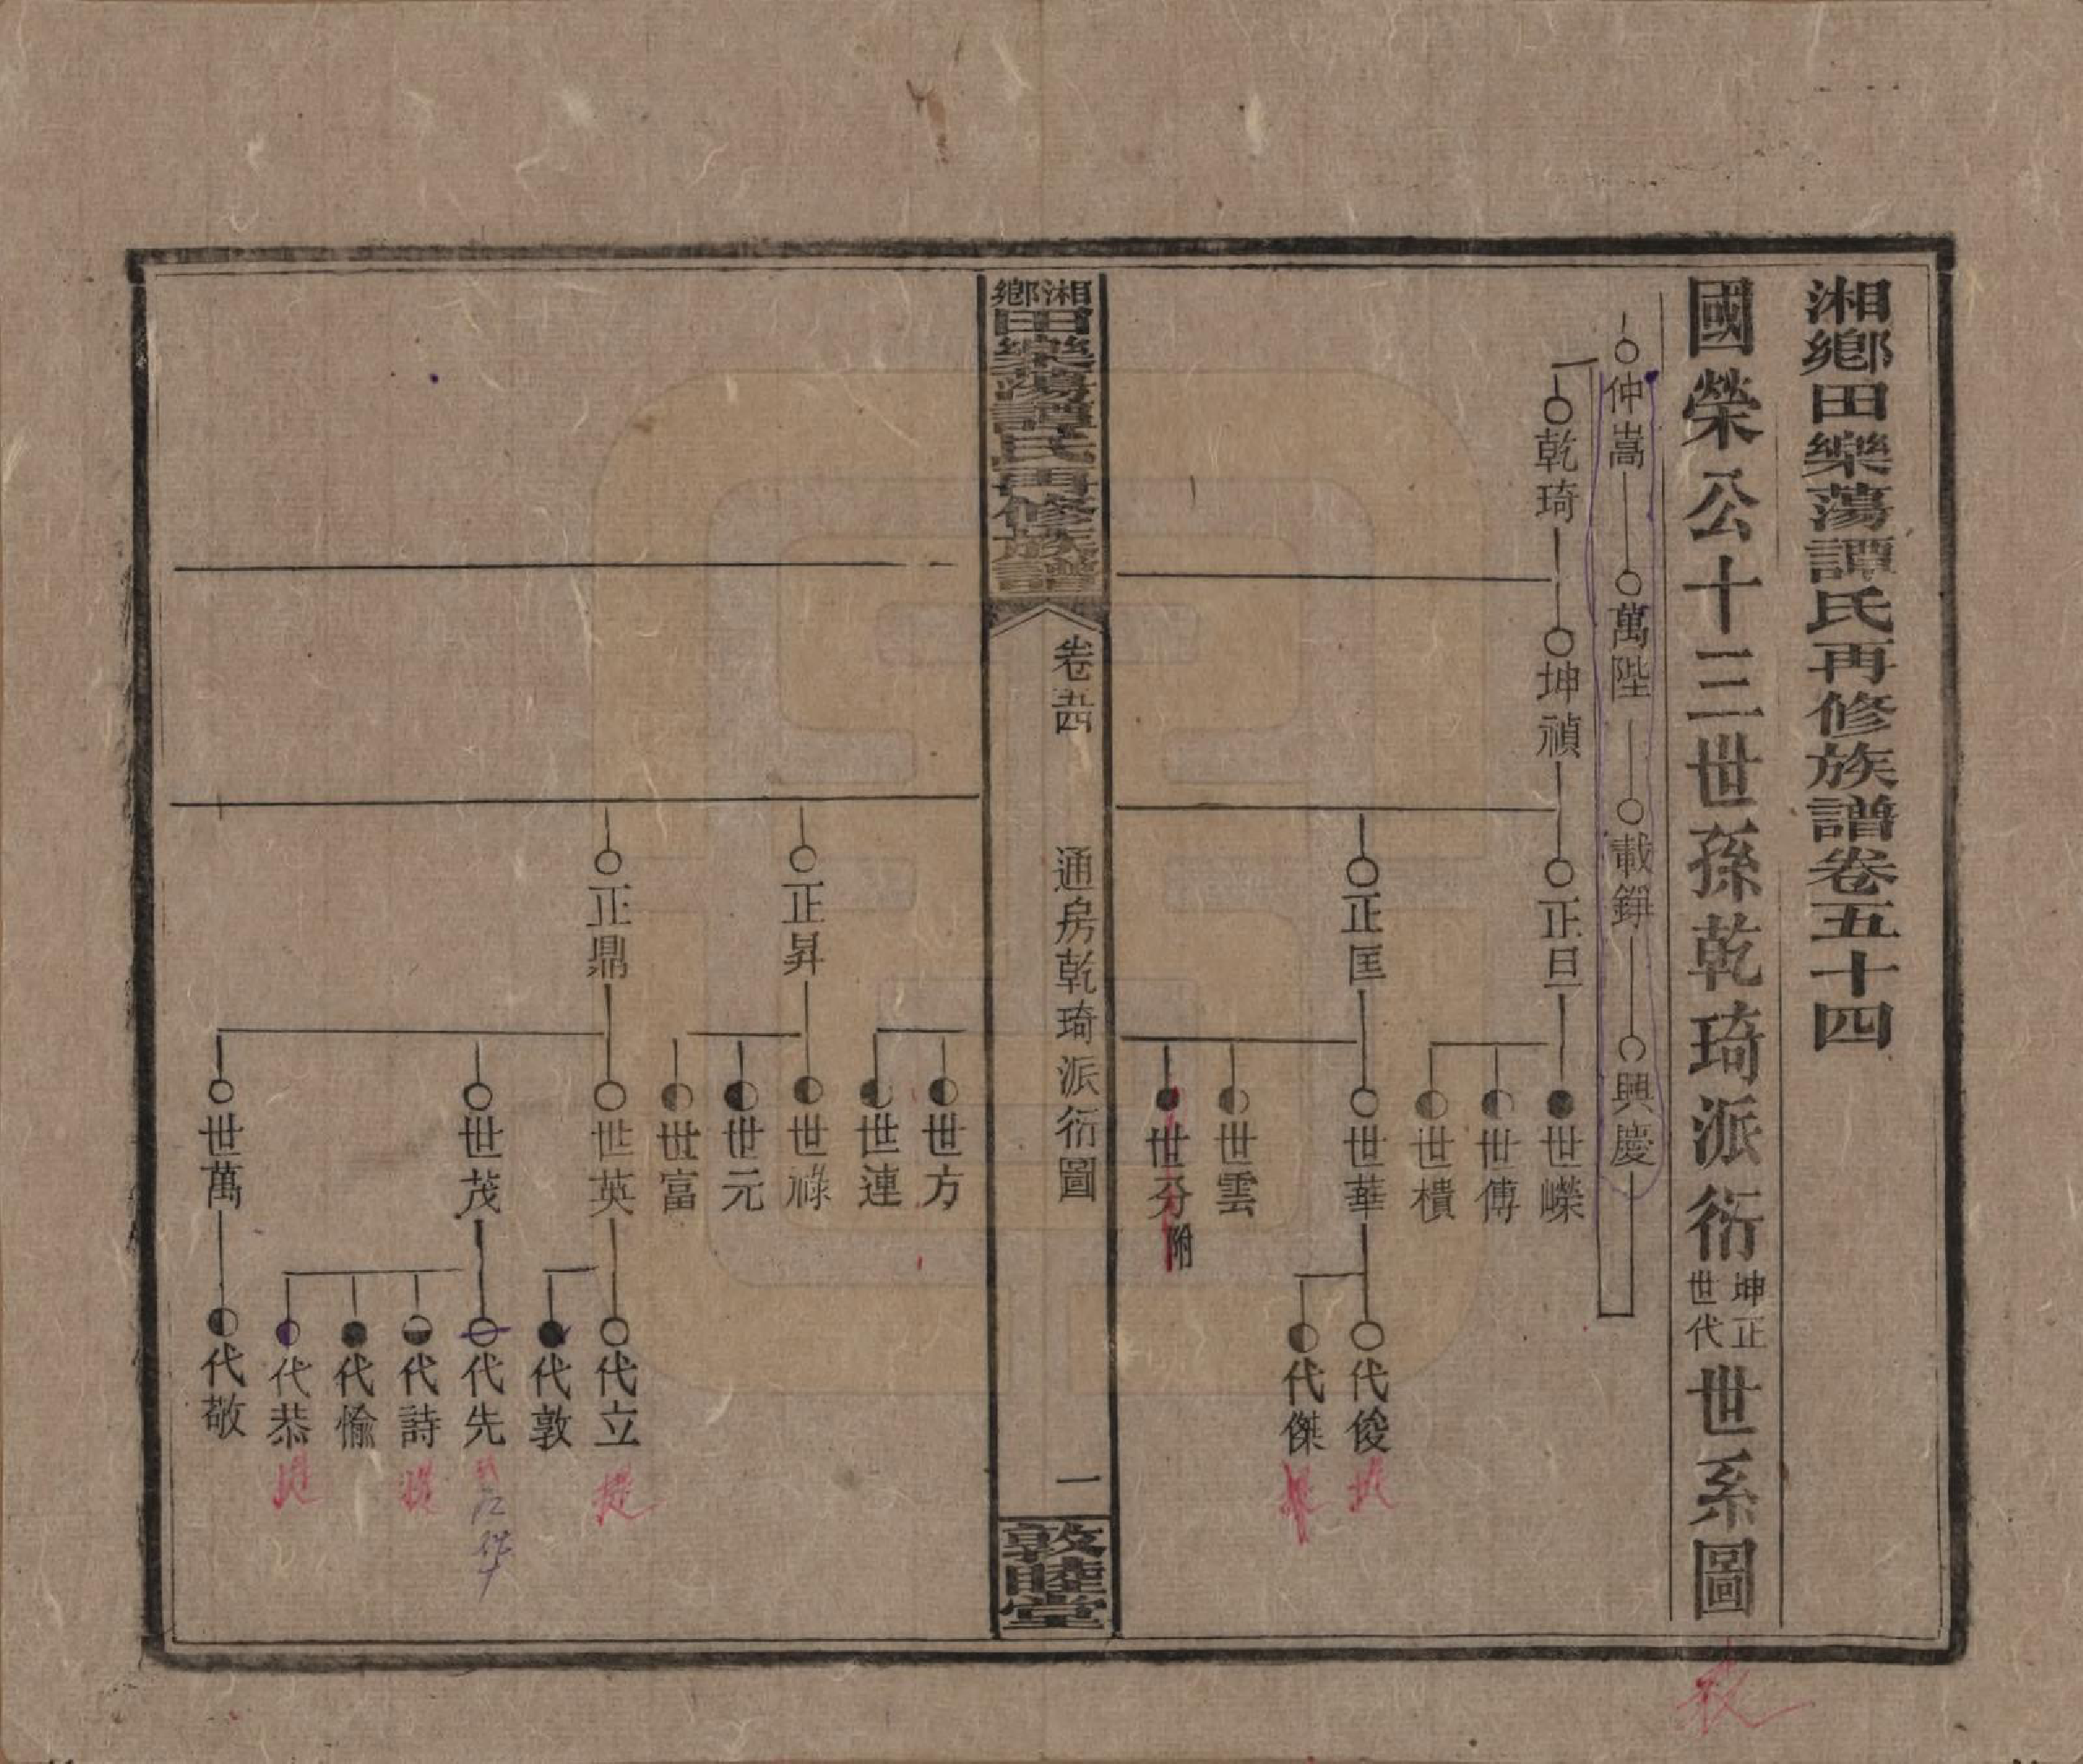 湘鄉田樂蕩譚氏再修族譜卷五十四
國榮公十三世孫乾琦派衍坤正世代世系圖
仲嵩
萬陛
載錛
興慶
乾琦
坤禎
正旦
世嶸
世傅
世樻
正匡
世華
代俊
代傑
世雲
世芬附
湘鄉田樂蕩譚氏再修族譜
卷五十四
通房乾琦派衍圖
一
敦睦堂
世方
世連
正昇
世祿
世元
世富
正鼎
世英
代立
代敦
世茂
代先
代詩
代愉
代恭
世萬
代敬